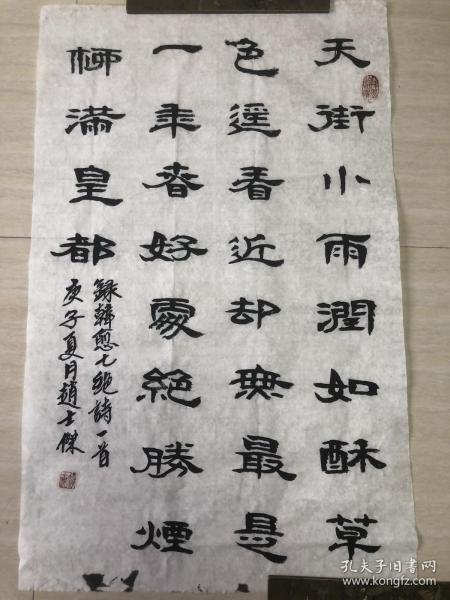 天街小雨潤如酥草
色遥看近却無最是
一年春好處絶勝煙
柳滿皇都
録韓愈七絶詩一首
庚子夏月趙士傑
孔夫子旧书网
www.kongfz.com